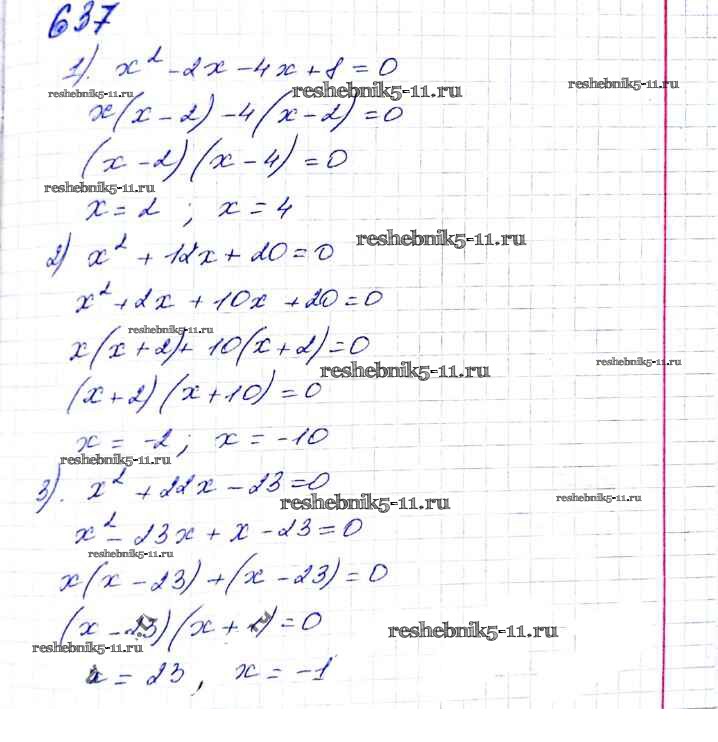 637
1). x² - 2x - 4x + 8 = 0
reshebnik5-11.ru reshebnik5-11.ru reshebnik5-11.ru
x(x - 2) - 4(x - 2) = 0
(x - 2)(x - 4) = 0
reshebnik5-11.ru
x = 2 ; x = 4
reshebnik5-11.ru
2) x² + 12x + 20 = 0
x² + 2x + 10x + 20 = 0
reshebnik5-11.ru
x(x + 2) + 10(x + 2) = 0
reshebnik5-11.ru reshebnik5-11.ru
(x + 2)(x + 10) = 0
x = -2 ; x = -10
reshebnik5-11.ru
3). x² + 22x - 23 = 0
reshebnik5-11.ru reshebnik5-11.ru
x² - 23x + x - 23 = 0
reshebnik5-11.ru
x(x - 23) + (x - 23) = 0
(x - 23)(x + 1) = 0
reshebnik5-11.ru reshebnik5-11.ru
x = 23, x = -1